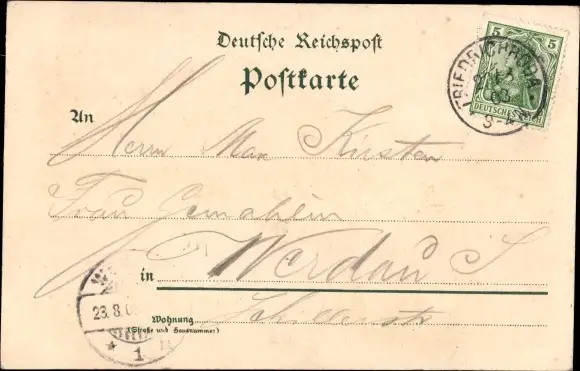 Deutsche Reichspost
Postkarte
5 5
DEUTSCHES REICH
FRIEDRICHRODA
An Herrn Max Kürsten
Frau Gemahlin
in Werdau S.
Wohnung Schillerstr
(Straße und Hausnummer)
23.8.0
* 1